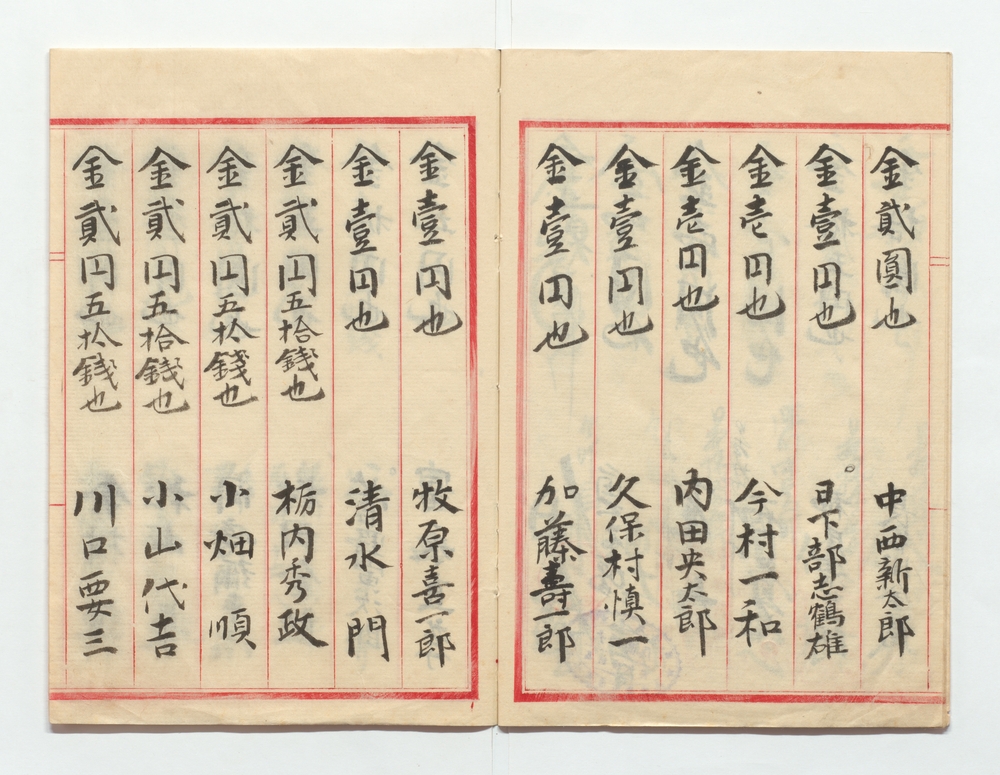 金貳圓也 中西新太郎
金壹円也 日下部志鶴雄
金壱円也 今村一和
金壱円也 内田央太郎
金壹円也 久保村慎一
金壹円也 加藤壽一郎
金壹円也 牧原喜一郎
金壹円也 清水門
金貳円五拾錢也 栃内秀政
金貳円五拾錢也 小畑順
金貳円五拾錢也 小山代吉
金貳円五拾錢也 川口要三